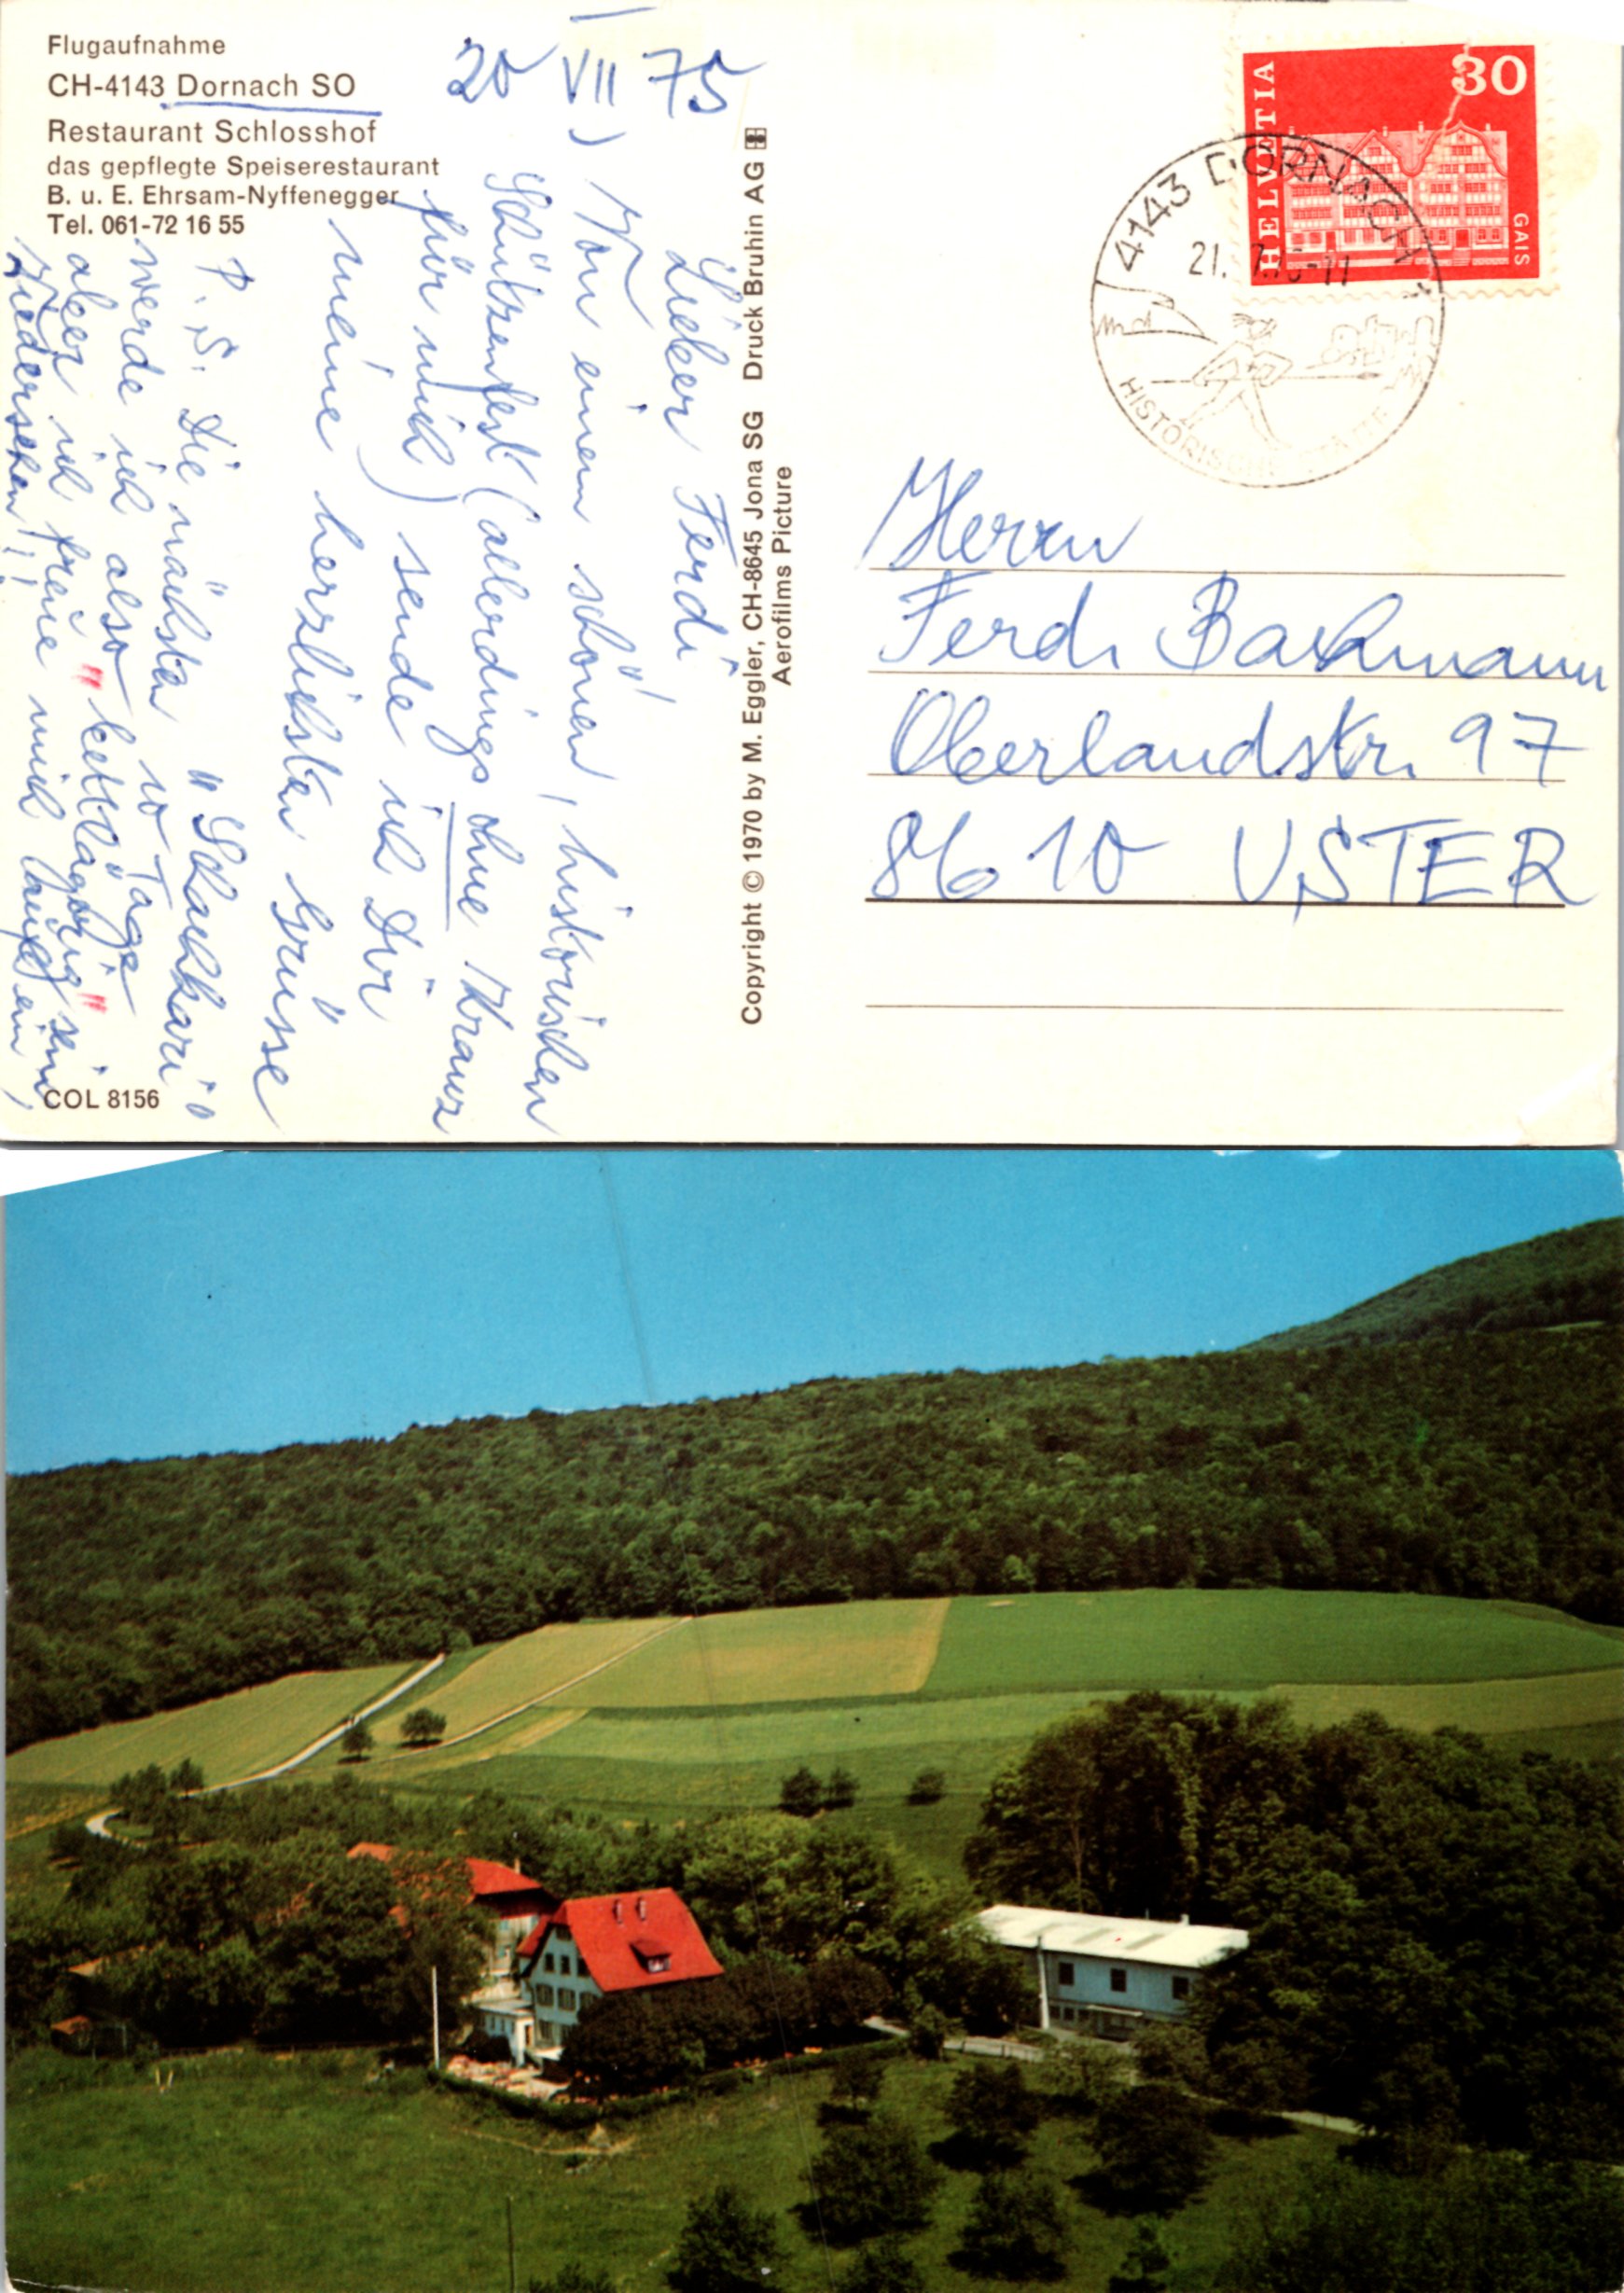 Flugaufnahme
CH-4143 Dornach SO
Restaurant Schlosshof
das gepflegte Speiserestaurant
B. u. E. Ehrsam-Nyffenegger
Tel. 061-72 16 55
20 VII 75
Lieber Ferdi
Von einem schönen, historischen
Schützenfest (allerdings ohne Kranz
für mich) sende ich Dir
meine herzlichsten Grüsse
P.S. Die nächsten
werde ich also 10 Tage
aber ich freue mich
Wiedersehen!!
COL 8156
Copyright © 1970 by M. Eggler, CH-8645 Jona SG Druck Bruhin AG
Aerofilms Picture
HELVETIA
30
GAIS
4143 DORNACH
21.
HISTORISCHE STÄTTE
Herrn
Ferdi Bachmann
Oberlandstr. 97
8610 USTER